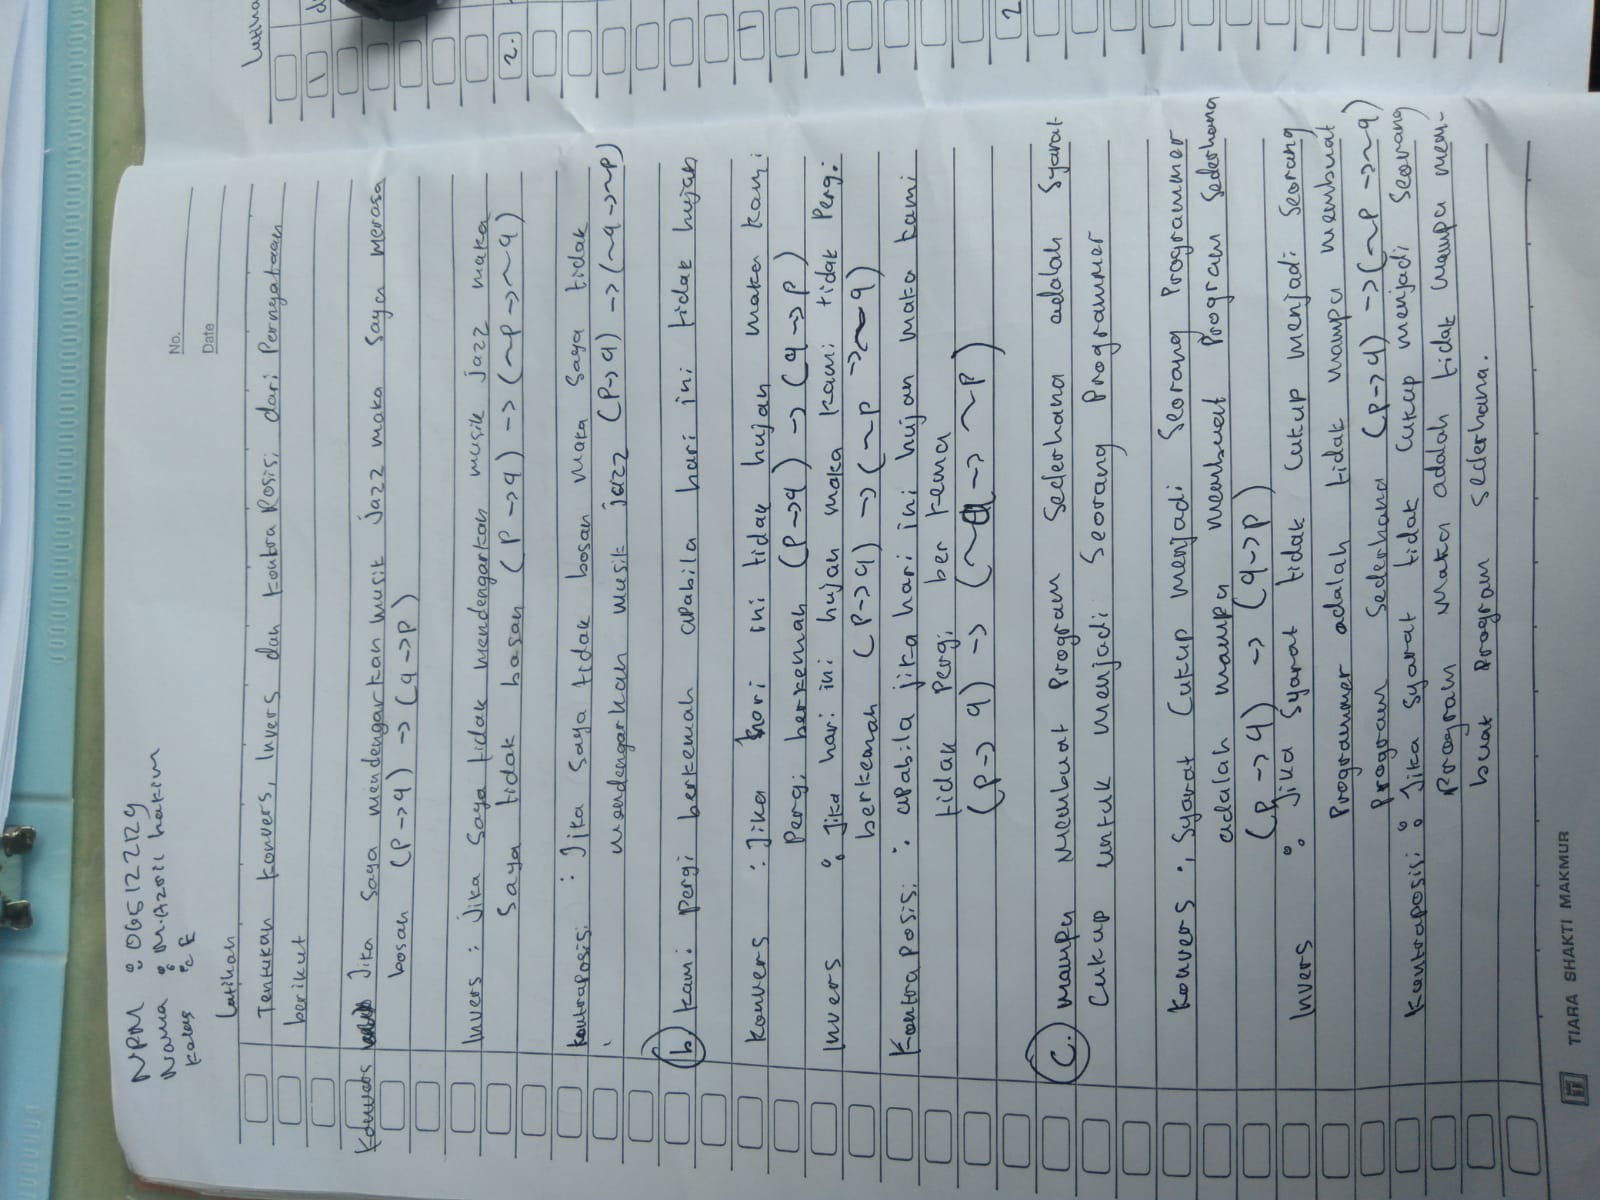 No.
Date
NPM : 065122129
Nama : M. Azril hakim
Kelas : E
Latihan
Tentukan konvers, Invers dan kontra Rosisi dari Pernyataan
berikut
Konvers Jika Saya mendengarkan musik jazz maka saya merasa
bosan (P→q) → (q→P)
Invers : Jika Saya tidak mendengarkan musik jazz maka
Saya tidak bosan (P→q) → (~P→~q)
kontraposisi : Jika Saya tidak bosan maka saya tidak
mendengarkan musik jazz (P→q) → (~q→~P)
b. kami pergi berkemah apabila hari ini tidak hujan
Konvers : Jika hari ini tidak hujan maka kami
Pergi berkemah (P→q) → (q→P)
Invers : Jika hari ini hujan maka kami tidak Pergi
berkemah (P→q) → (~P→~q)
Kontraposisi : apabila jika hari ini hujan maka kami
tidak Pergi berkema
(P→q) → (~q→~P)
C. mampu membuat Program Sederhana adalah Syarat
Cukup untuk menjadi Seorang Programmer
Konvers : Syarat Cukup menjadi Seorang Programmer
adalah mampu membuat Program Sederhana
(P→q) → (q→P)
Invers : Jika Syarat tidak Cukup menjadi Seorang
Programmer adalah tidak mampu membuat
Program Sederhana (P→q) → (~P→~q)
Kontraposisi : Jika Syarat tidak Cukup menjadi Seorang
Program maka adalah tidak mampu mem-
buat Program Sederhana.
TIARA SHAKTI MAKMUR
Latiha
1
2.
1
2